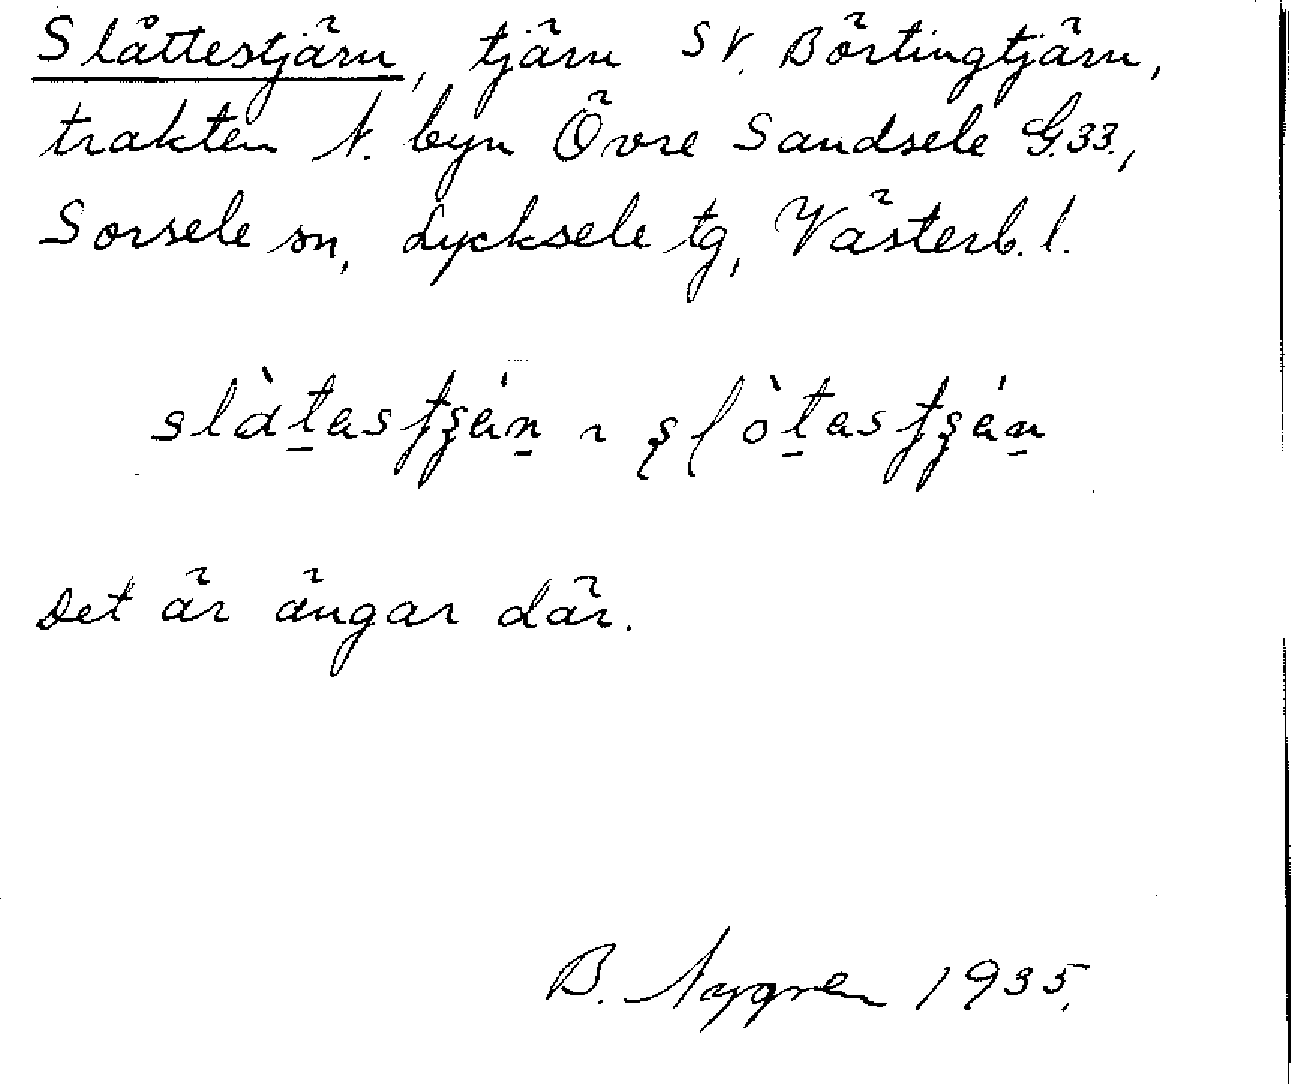 Slåttestjärn, tjärn SV. Börtingtjärn,
trakten N. byn Övre Sandsele G.33.,
Sorsele sn, Lycksele tg, Västerb. l.
Det är ängar där.
B. Nygren 1935.